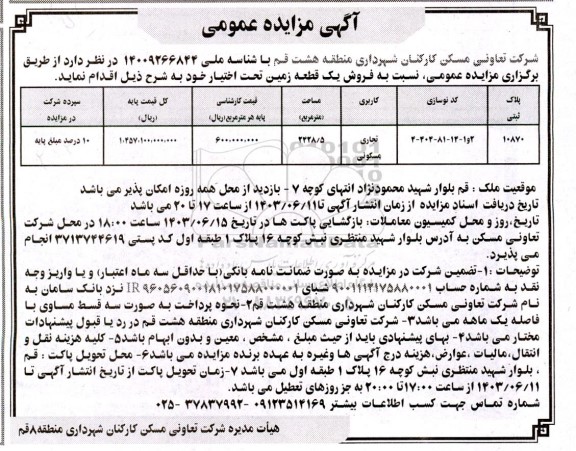 آگهی مزایده عمومی
شرکت تعاونی مسکن کارکنان شهرداری منطقه هشت قم با شناسه ملی ۱۴۰۰۹۲۶۶۸۴۴ در نظر دارد از طریق
برگزاری مزایده عمومی، نسبت به فروش یک قطعه زمین تحت اختیار خود به شرح ذیل اقدام نماید.
پلاک ثبتی | کد نوسازی | کاربری | مساحت (مترمربع) | قیمت کارشناسی پایه هر مترمربع(ریال) | کل قیمت پایه (ریال) | سپرده شرکت در مزایده
۱۰۸۷۰ | ۲و۱-۱۲-۸۱-۴۰۲-۴ | تجاری مسکونی | ۲۴۲۸/۵ | ۶۰۰.۰۰۰.۰۰۰ | ۱.۴۵۷.۱۰۰.۰۰۰.۰۰۰ | ۱۰ درصد مبلغ پایه
موقعیت ملک : قم بلوار شهید محمودنژاد انتهای کوچه ۷ - بازدید از محل همه روزه امکان پذیر می باشد
تاریخ دریافت اسناد مزایده از زمان انتشار آگهی تا۱۴۰۳/۰۶/۱۱ از ساعت ۱۷ تا ۲۰ می باشد
تاریخ،روز و محل کمیسیون معاملات: بازگشایی پاکت ها در تاریخ ۱۴۰۳/۰۶/۱۵ ساعت ۱۸:۰۰ در محل شرکت
تعاونی مسکن به آدرس بلوار شهید منتظری نبش کوچه ۱۶ پلاک ۱ طبقه اول کد پستی ۳۷۱۳۷۴۴۶۱۹ انجام
می پذیرد.
توضیحات :۱-تضمین شرکت در مزایده به صورت ضمانت نامه بانکی(با حداقل سه ماه اعتبار) و یا واریز وجه
نقد به شماره حساب شبای IR نزد بانک سامان به
نام شرکت تعاونی مسکن کارکنان شهرداری منطقه هشت قم۲-نحوه پرداخت به صورت سه قسط مساوی با
فاصله یک ماهه می باشد۳- شرکت تعاونی مسکن کارکنان شهرداری منطقه هشت قم در رد یا قبول پیشنهادات
مختار می باشد۴- بهای پیشنهادی باید از حیث مبلغ ، مشخص ، معین و بدون ابهام باشد۵-کلیه هزینه نقل و
انتقال،مالیات ،عوارض،هزینه درج آگهی ها وغیره به عهده برنده مزایده می باشد۶- محل تحویل پاکت : قم
، بلوار شهید منتظری نبش کوچه ۱۶ پلاک ۱ طبقه اول می باشد ۷-زمان تحویل پاکت از تاریخ انتشار آگهی تا
۱۴۰۳/۰۶/۱۱ از ساعت ۱۷:۰۰تا ۲۰:۰۰ به جز روزهای تعطیل می باشد.
شماره تماس جهت کسب اطلاعات بیشتر ۰۹۱۲۳۵۱۴۱۶۹ -۳۷۸۳۷۹۹۲-۰۲۵
هیأت مدیره شرکت تعاونی مسکن کارکنان شهرداری منطقه۸قم